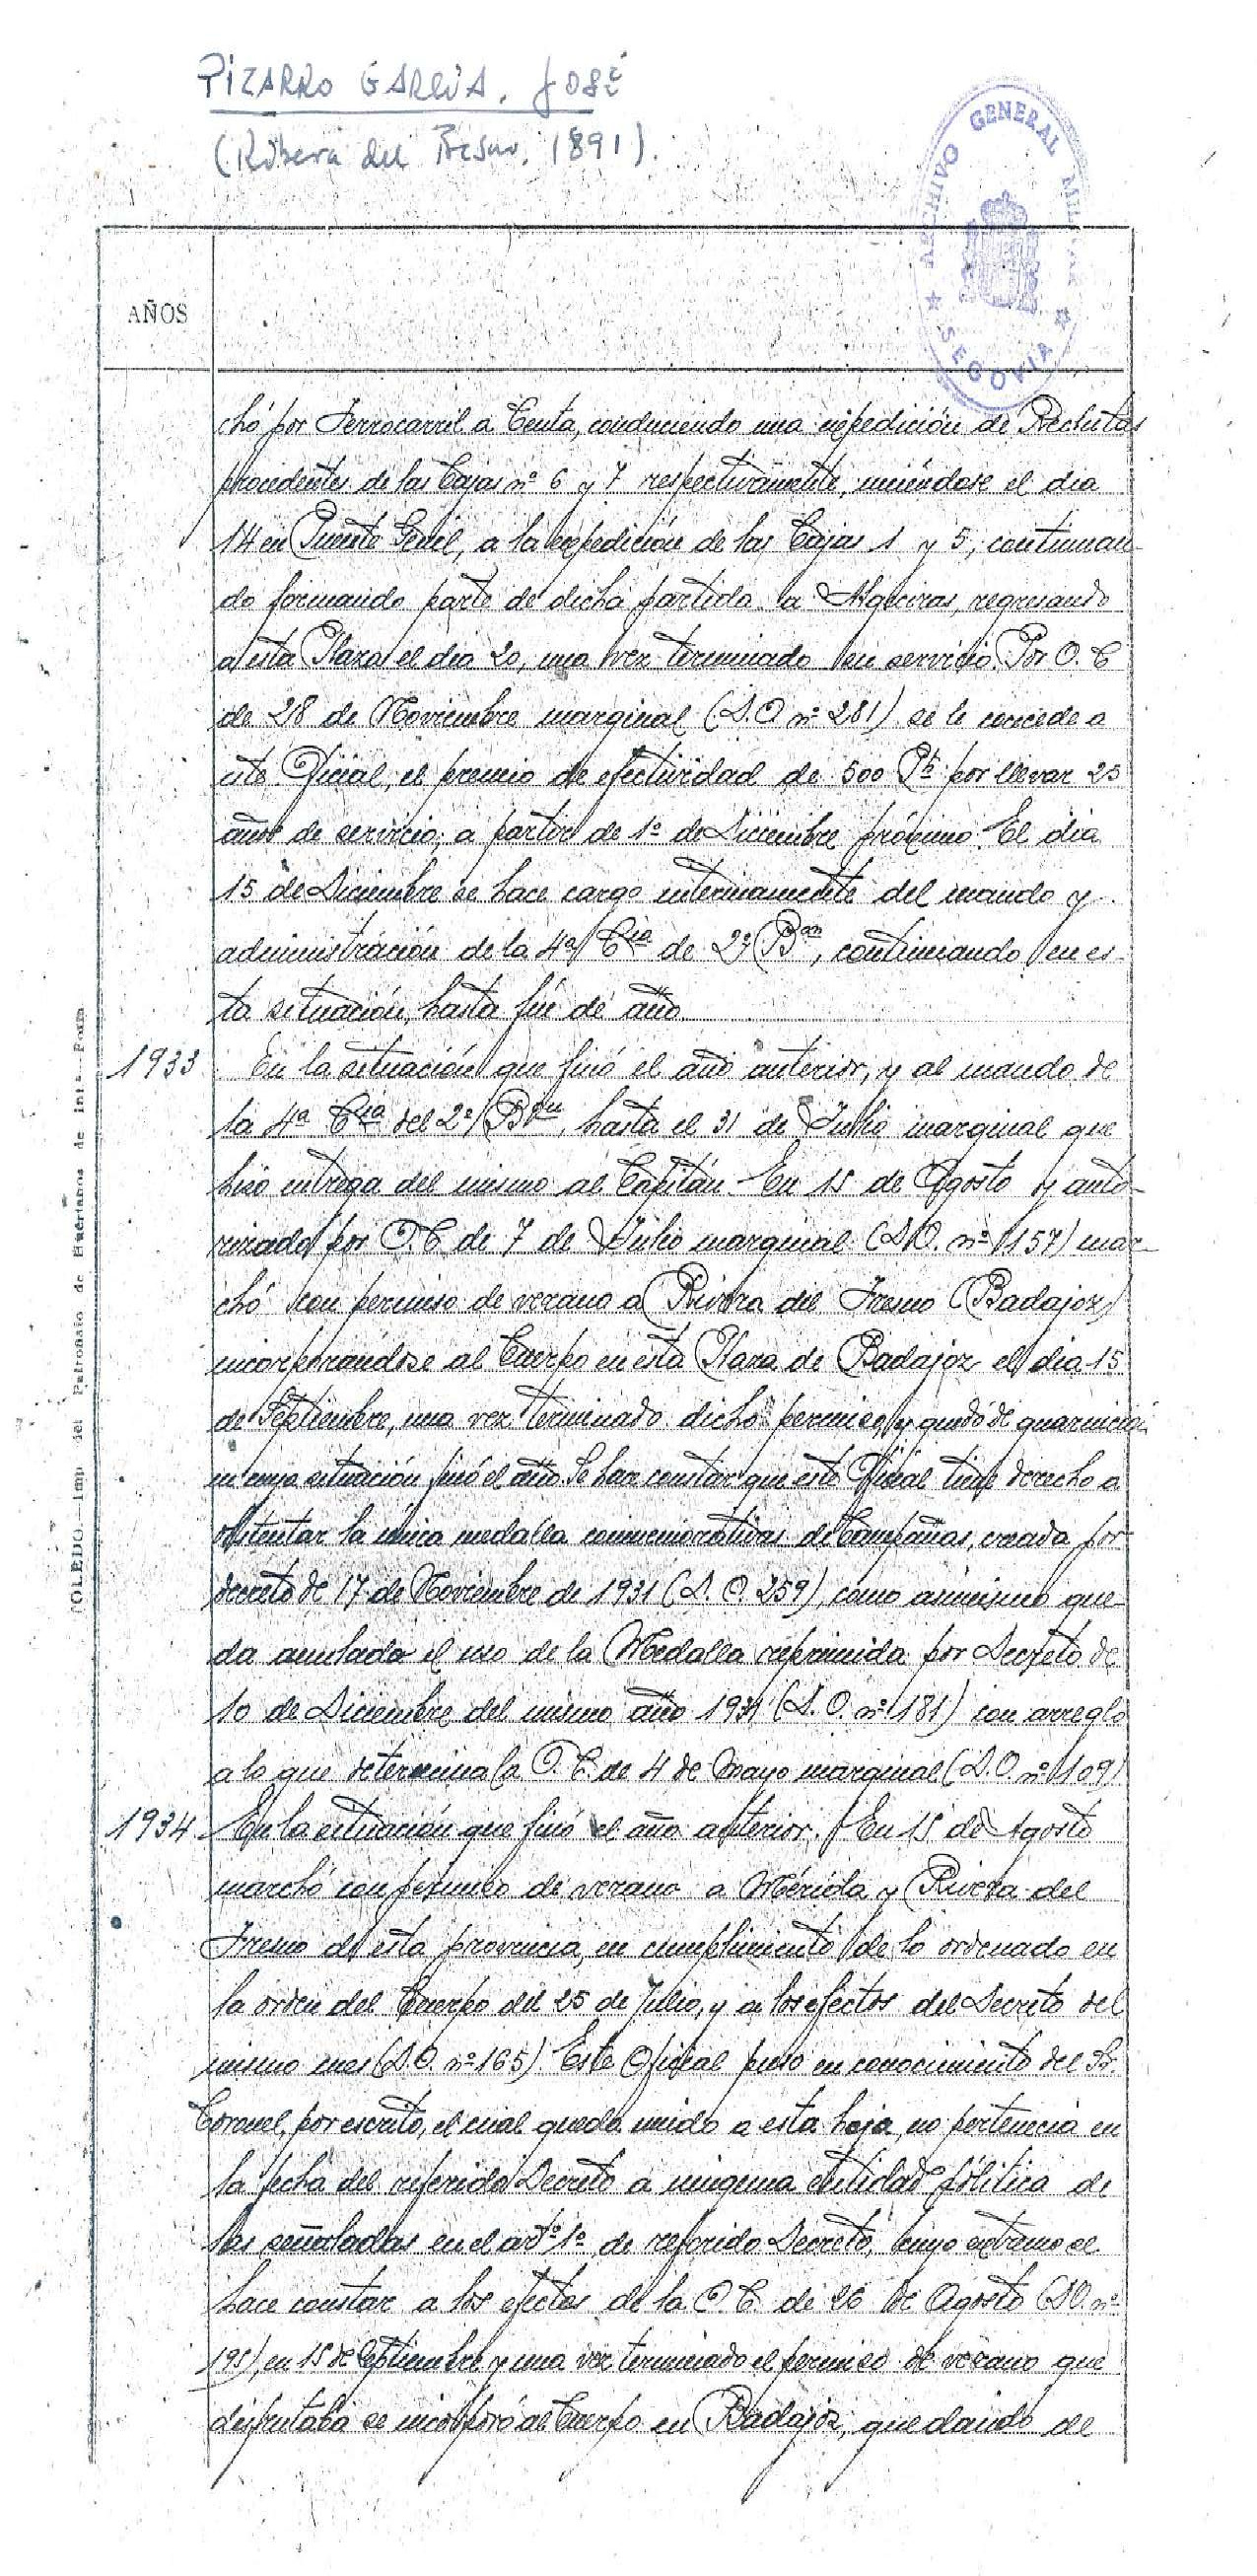 PIZARRO GARCÍA, JOSÉ
(Ribera del Fresno, 1891).
ARCHIVO GENERAL MILITAR
★ SEGOVIA ★
AÑOS
chó por Ferrocarril a Ceuta, conduciendo una expedición de Reclutas
procedentes de las Cajas nº 6 y 7 respectivamente, uniéndose el dia
14 en Puente Genil, a la expedición de las Cajas 1 y 5, continuan-
do formando parte de dicha partida a Algeciras, regresando
a esta Plaza el dia 20, una vez terminado su servicio. Por O. C
de 28 de Noviembre marginal (D.O nº 281) se le concede a
este Oficial, el premio de efectividad de 500 Pts por llevar 25
años de servicio, a partir de 1º de Diciembre próximo. El dia
15 de Diciembre se hace cargo interinamente del mando y
administración de la 4ª Cia de 2º Bon, continuando en es-
ta situación, hasta fin de año.
1933 En la situación que finó el año anterior, y al mando de
la 4ª Cia del 2º Bon, hasta el 31 de Julio marginal que
hizo entrega del mismo al Capitán. En 15 de Agosto y auto-
rizado por O.C. de 7 de Julio marginal (D.O. nº 157) mar-
chó con permiso de verano a Rivera del Fresno (Badajoz)
incorporándose al Cuerpo en esta Plaza de Badajoz el dia 15
de Septiembre, una vez terminado dicho permiso, y quedó de guarnición
en cuya situación finó el año. Se hace constar que este Oficial tiene derecho a
ostentar la única medalla conmemorativas de Campañas, creada por
decreto de 17 de Noviembre de 1931 (D. O. 259), como asimismo que-
da anulada el uso de la Medalla reprimida por Decreto de
10 de Diciembre del mismo año 1931 (D. O. nº 181) con arreglo
a lo que determina la O. C. de 4 de Mayo marginal (D.O. nº 109)
1934 En la situación que finó el año anterior. En 15 de Agosto
marchó con permiso de verano a Mérida y Rivera del
Fresno de esta provincia, en cumplimiento de lo ordenado en
la orden del Cuerpo del 25 de Julio, y a los efectos del Decreto del
mismo mes (D.O. nº 165) Este Oficial puso en conocimiento del Sr.
Coronel, por escrito, el cual queda unido a esta hoja, no pertenecía en
la fecha del referido Decreto a ninguna entidad política de
las señaladas en el artº 1º de referido Decreto, cuyo extremo se
hace constar a los efectos de la O. C. de 26 de Agosto (D.O. nº
195), en 15 de Septiembre y una vez terminado el permiso de verano que
disfrutaba se incorporó al Cuerpo en Badajoz, quedando de
TOLEDO.—Imp del Patronato de Huérfanos de